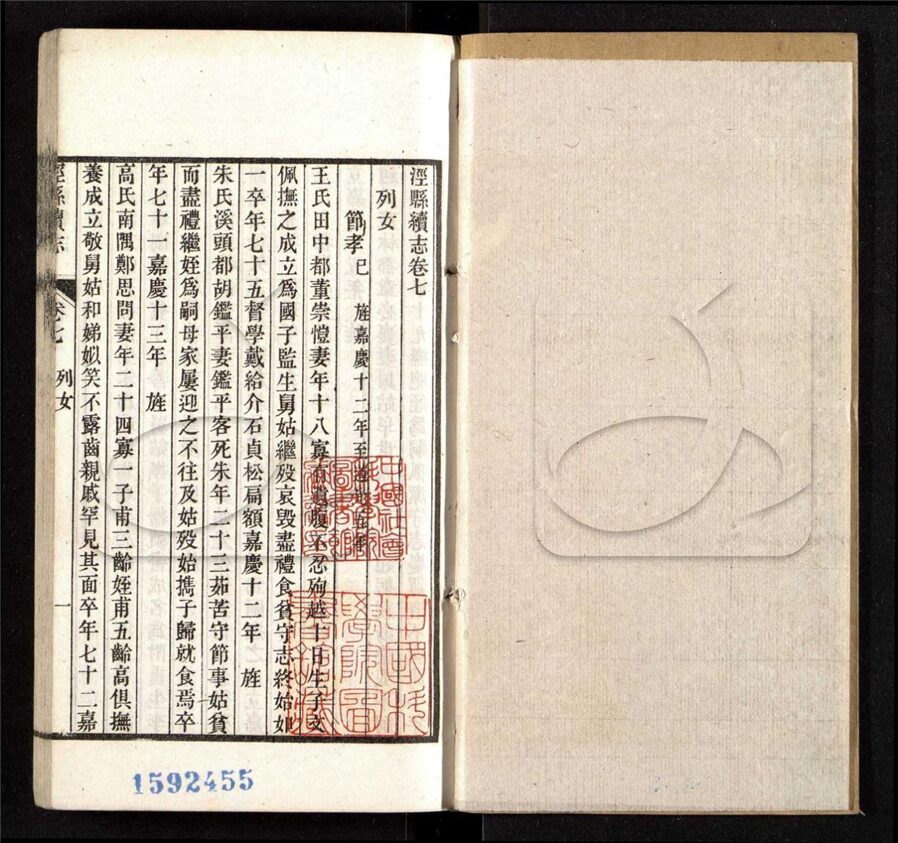 涇縣續志卷七
列女
節孝已 旌嘉慶十二年至道光五年
王氏田中都董崇愷妻年十八寡有遺腹不忍殉越十日生子文
佩撫之成立爲國子監生舅姑繼殁哀毀盡禮食貧守志終始如
一卒年七十五督學戴給介石貞松扁額嘉慶十二年 旌
朱氏溪頭都胡鑑平妻鑑平客死朱年二十三茹苦守節事姑貧
而盡禮繼姪爲嗣母家屢迎之不往及姑殁始攜子歸就食焉卒
年七十一嘉慶十三年 旌
高氏南隅鄭思問妻年二十四寡一子甫三齡姪甫五齡高俱撫
養成立敬舅姑和娣姒笑不露齒親戚罕見其面卒年七十二嘉
涇縣續志 卷七 列女 一
1592455